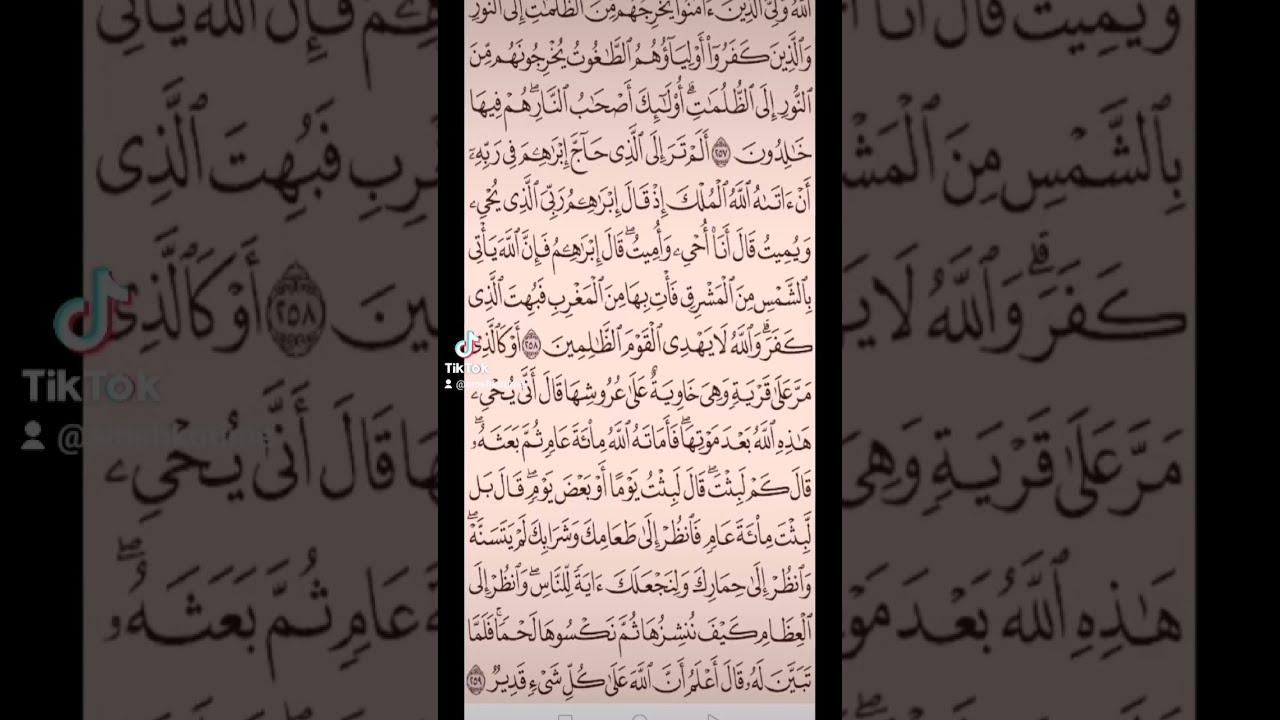 ٱللَّهُ وَلِىُّ ٱلَّذِينَ ءَامَنُوا۟ يُخْرِجُهُم مِّنَ ٱلظُّلُمَٰتِ إِلَى ٱلنُّورِ
وَٱلَّذِينَ كَفَرُوٓا۟ أَوْلِيَآؤُهُمُ ٱلطَّٰغُوتُ يُخْرِجُونَهُم مِّنَ
ٱلنُّورِ إِلَى ٱلظُّلُمَٰتِ ۗ أُو۟لَٰٓئِكَ أَصْحَٰبُ ٱلنَّارِ ۖ هُمْ فِيهَا
خَٰلِدُونَ ٢٥٧ أَلَمْ تَرَ إِلَى ٱلَّذِى حَآجَّ إِبْرَٰهِۦمَ فِى رَبِّهِۦٓ
أَنْ ءَاتَىٰهُ ٱللَّهُ ٱلْمُلْكَ إِذْ قَالَ إِبْرَٰهِۦمُ رَبِّىَ ٱلَّذِى يُحْىِۦ
وَيُمِيتُ قَالَ أَنَا۠ أُحْىِۦ وَأُمِيتُ ۖ قَالَ إِبْرَٰهِۦمُ فَإِنَّ ٱللَّهَ يَأْتِى
بِٱلشَّمْسِ مِنَ ٱلْمَشْرِقِ فَأْتِ بِهَا مِنَ ٱلْمَغْرِبِ فَبُهِتَ ٱلَّذِى
كَفَرَ ۗ وَٱللَّهُ لَا يَهْدِى ٱلْقَوْمَ ٱلظَّٰلِمِينَ ٢٥٨ أَوْ كَٱلَّذِى
مَرَّ عَلَىٰ قَرْيَةٍ وَهِىَ خَاوِيَةٌ عَلَىٰ عُرُوشِهَا قَالَ أَنَّىٰ يُحْىِۦ
هَٰذِهِ ٱللَّهُ بَعْدَ مَوْتِهَا ۖ فَأَمَاتَهُ ٱللَّهُ مِا۟ئَةَ عَامٍ ثُمَّ بَعَثَهُۥ ۖ
قَالَ كَمْ لَبِثْتَ ۖ قَالَ لَبِثْتُ يَوْمًا أَوْ بَعْضَ يَوْمٍ ۖ قَالَ بَل
لَّبِثْتَ مِا۟ئَةَ عَامٍ فَٱنظُرْ إِلَىٰ طَعَامِكَ وَشَرَابِكَ لَمْ يَتَسَنَّهْ ۖ
وَٱنظُرْ إِلَىٰ حِمَارِكَ وَلِنَجْعَلَكَ ءَايَةً لِّلنَّاسِ ۖ وَٱنظُرْ إِلَى
ٱلْعِظَامِ كَيْفَ نُنشِزُهَا ثُمَّ نَكْسُوهَا لَحْمًا ۚ فَلَمَّا
تَبَيَّنَ لَهُۥ قَالَ أَعْلَمُ أَنَّ ٱللَّهَ عَلَىٰ كُلِّ شَىْءٍ قَدِيرٌ ٢٥٩
TikTok